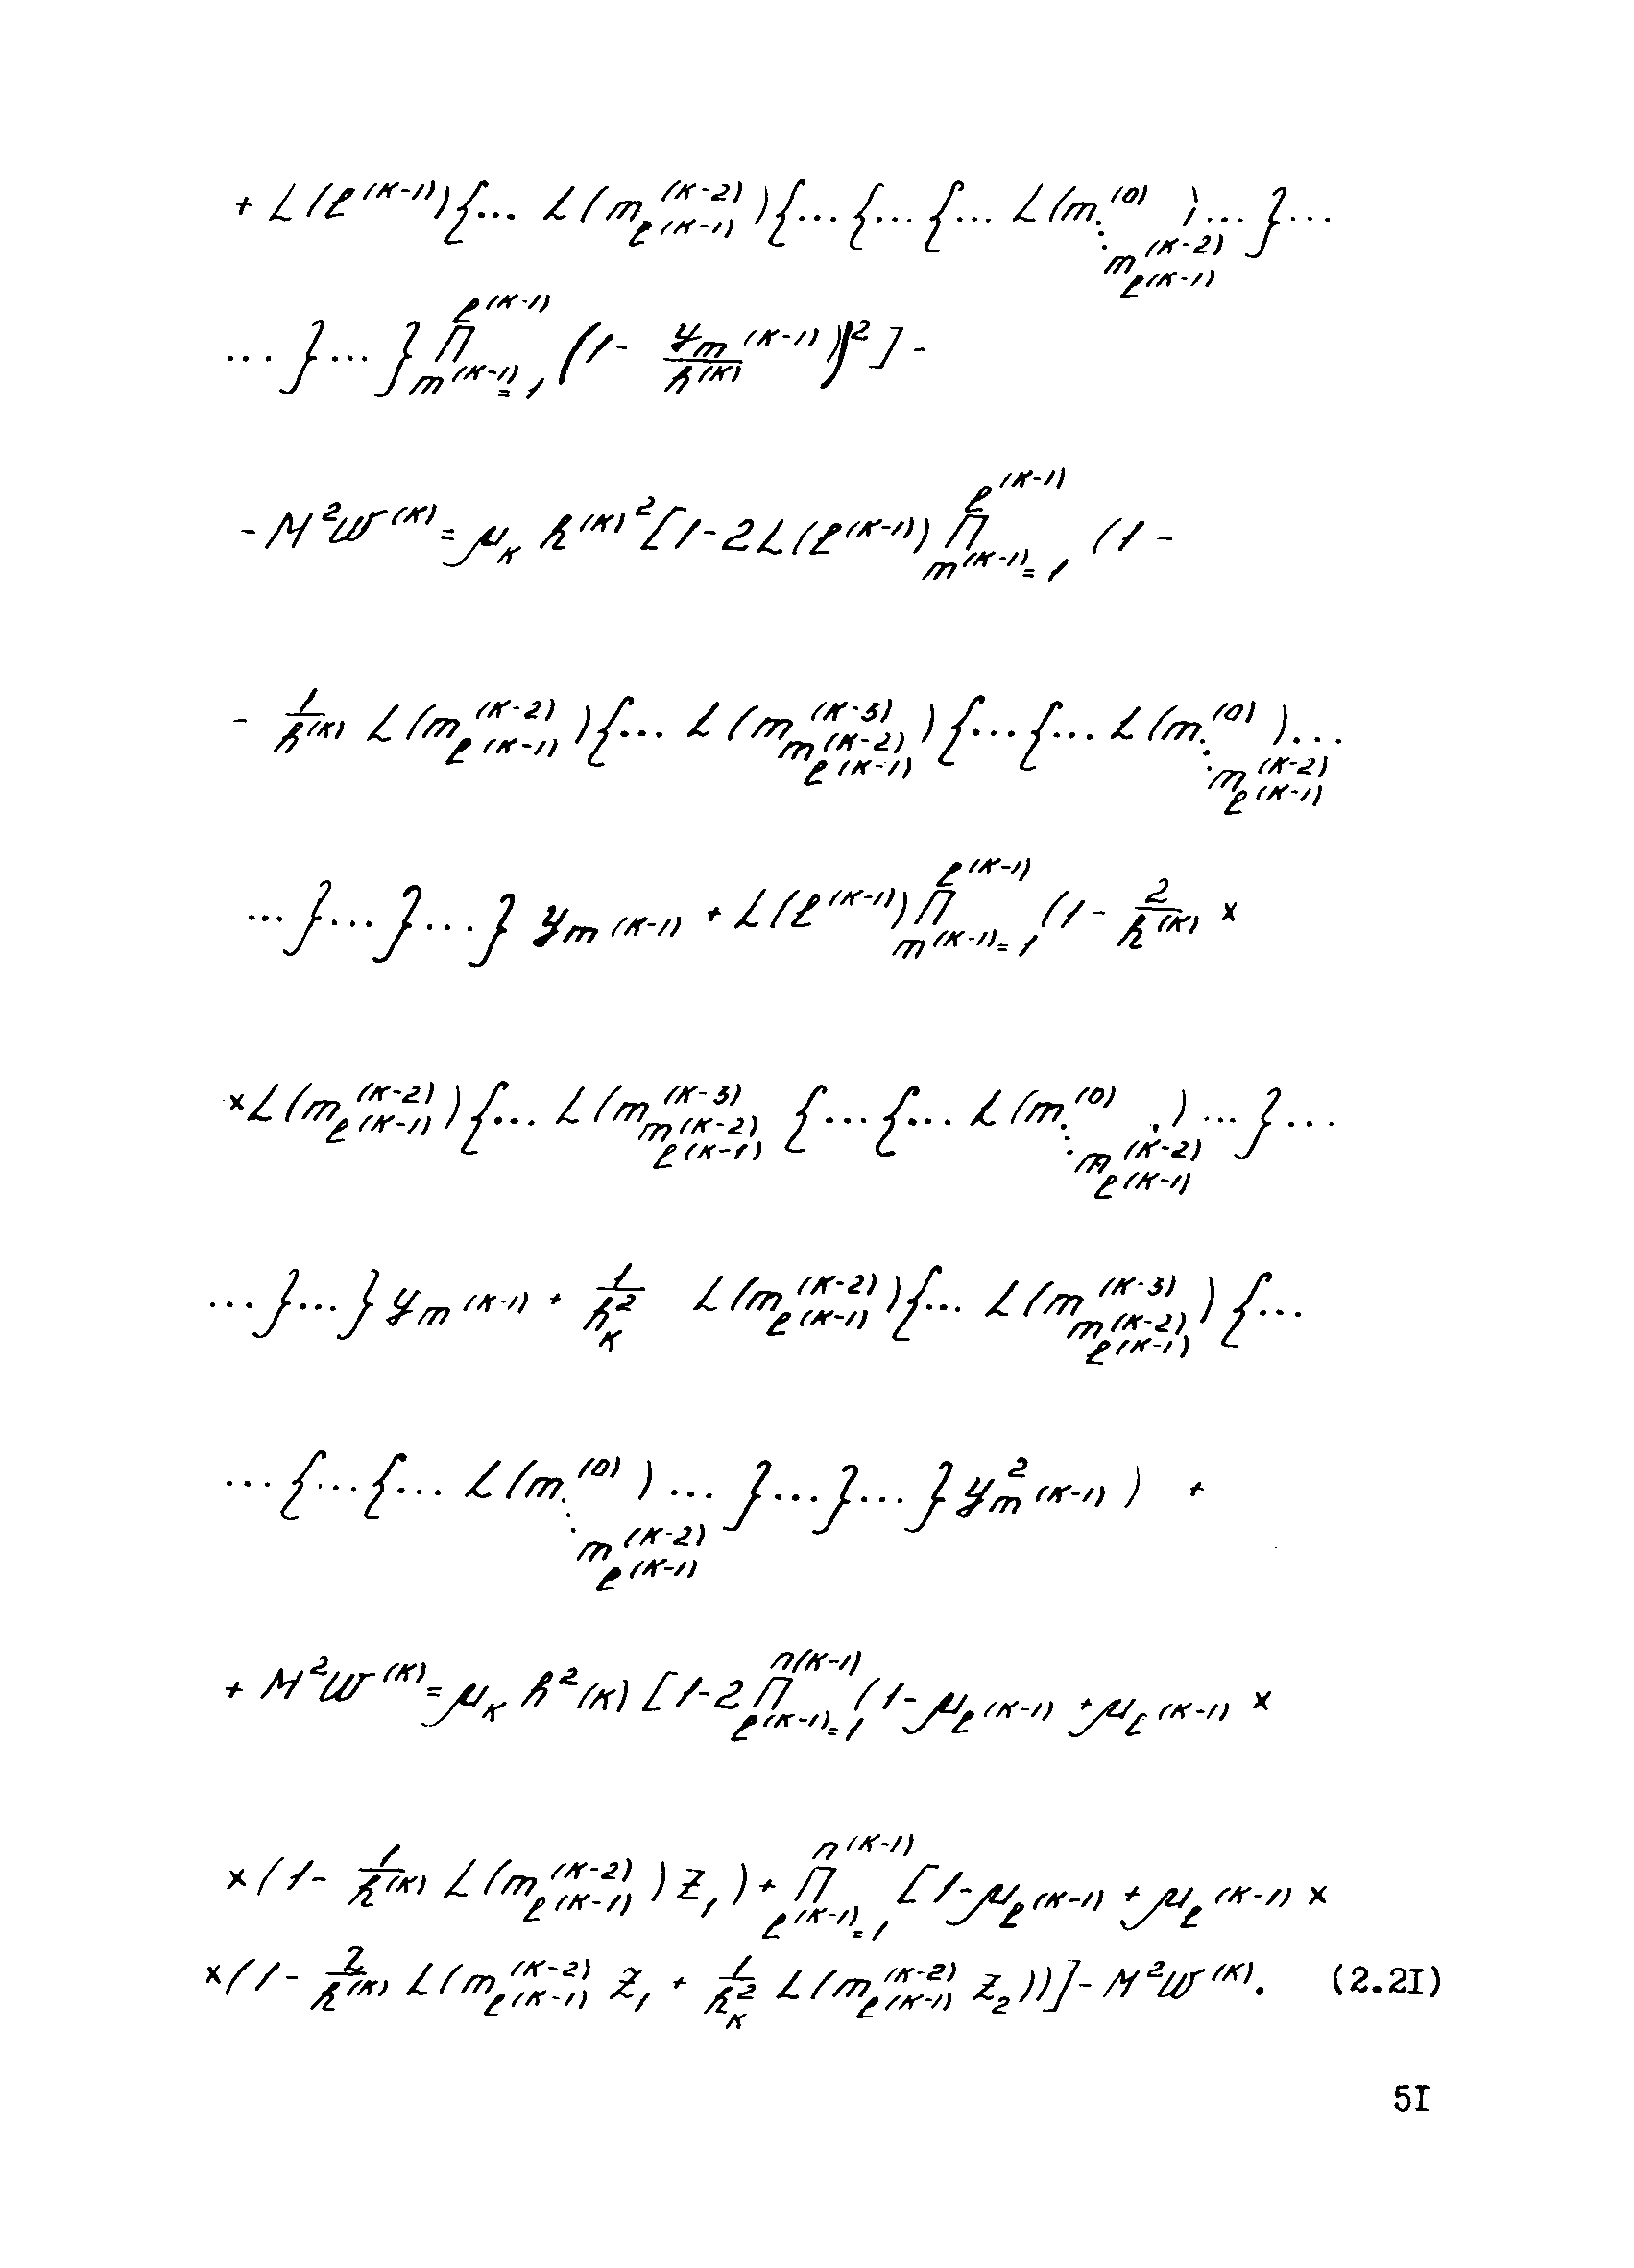 + L(ℓ^{(K-1)}){... L(m_{ℓ^{(K-1)}}^{(K-2)}){...{...{... L(m^{(0)}_{⋱ m^{(K-2)}_{ℓ^{(K-1)}}})...}...
...}...} Π_{m^{(K-1)}=1}^{ℓ^{(K-1)}} (1- \frac{y_{m^{(K-1)}}}{h^{(K)}})^2] -
- M^2W^{(K)} = μ_K h^{(K)2}[1-2L(ℓ^{(K-1)}) Π_{m^{(K-1)}=1}^{ℓ^{(K-1)}} (1 -
- \frac{1}{h^{(K)}} L(m_{ℓ^{(K-1)}}^{(K-2)}){... L(m^{(K-3)}_{m^{(K-2)}_{ℓ^{(K-1)}}}){...{... L(m^{(0)}_{⋱ m^{(K-2)}_{ℓ^{(K-1)}}})...
...}...}...} y_{m^{(K-1)}} + L(ℓ^{(K-1)}) Π_{m^{(K-1)}=1}^{ℓ^{(K-1)}} (1- \frac{2}{h^{(K)}} ×
× L(m_{ℓ^{(K-1)}}^{(K-2)}){... L(m^{(K-3)}_{m^{(K-2)}_{ℓ^{(K-1)}}} {...{... L(m^{(0)}_{⋱ m^{(K-2)}_{ℓ^{(K-1)}}})...}...
...}...} y_{m^{(K-1)}} + \frac{1}{h_K^2} L(m_{ℓ^{(K-1)}}^{(K-2)}){... L(m^{(K-3)}_{m^{(K-2)}_{ℓ^{(K-1)}}}){...
...{...{... L(m^{(0)}_{⋱ m^{(K-2)}_{ℓ^{(K-1)}}})...}...}...} y^2_{m^{(K-1)}}) +
+ M^2W^{(K)} = μ_K h^2(K) [1-2 Π_{ℓ^{(K-1)}=1}^{n(K-1)} (1-μ_{ℓ^{(K-1)}} + μ_{ℓ^{(K-1)}} ×
× (1- \frac{1}{h^{(K)}} L(m_{ℓ^{(K-1)}}^{(K-2)}) Z_1) + Π_{ℓ^{(K-1)}=1}^{n^{(K-1)}} [1-μ_{ℓ^{(K-1)}} + μ_{ℓ^{(K-1)}} ×
× (1- \frac{2}{h^{(K)}} L(m_{ℓ^{(K-1)}}^{(K-2)} Z_1 + \frac{1}{h_K^2} L(m_{ℓ^{(K-1)}}^{(K-2)} Z_2))] - M^2W^{(K)}. (2.2I)
5I